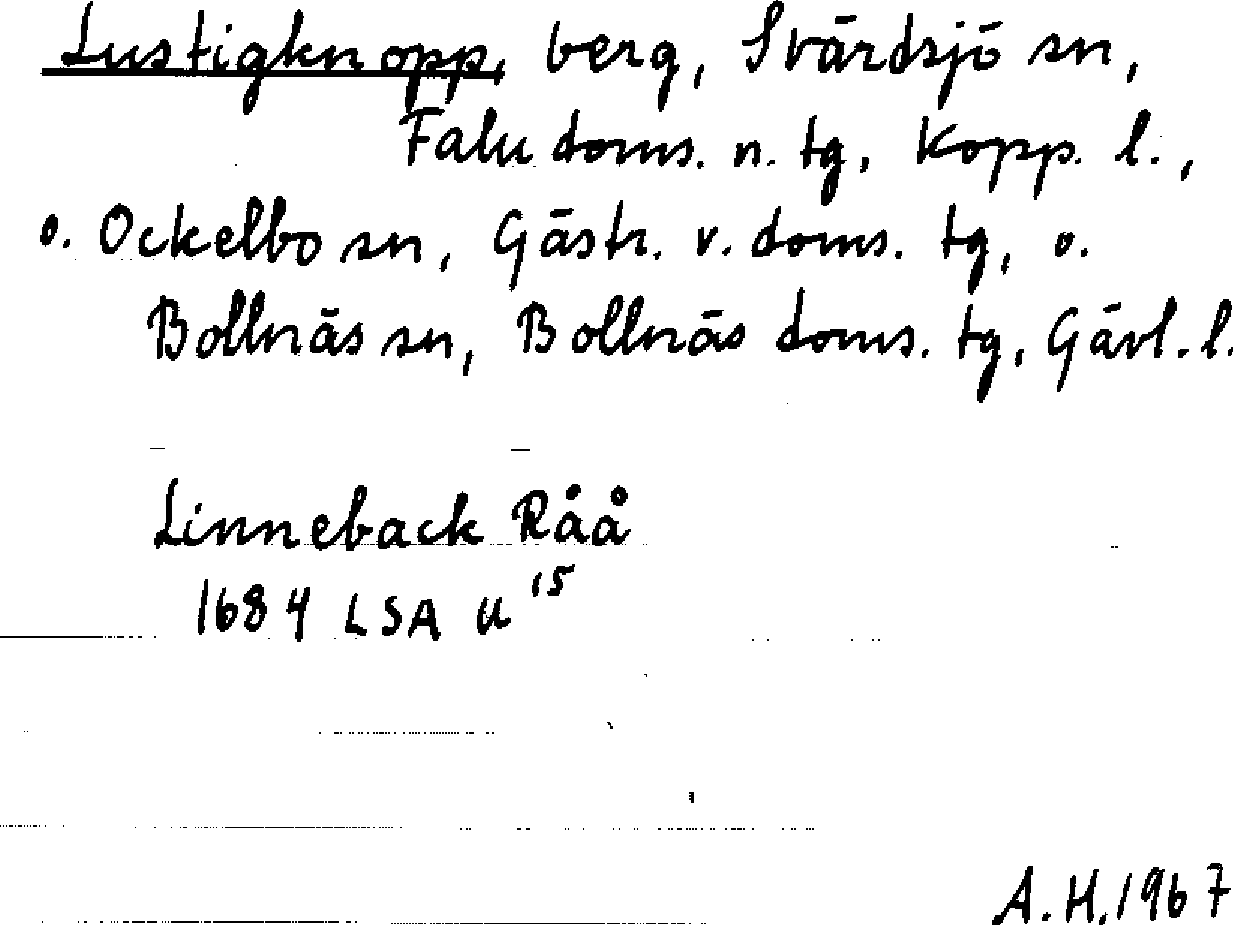 Lustigknopp, berg, Svärdsjö sn,
Falu doms. n. tg, Kopp. l.,
o. Ockelbo sn, Gästr. v. doms. tg, o.
Bollnäs sn, Bollnäs doms. tg, Gävl. l.
Linneback Råå
1684 LSA U 15
A.H. 1967